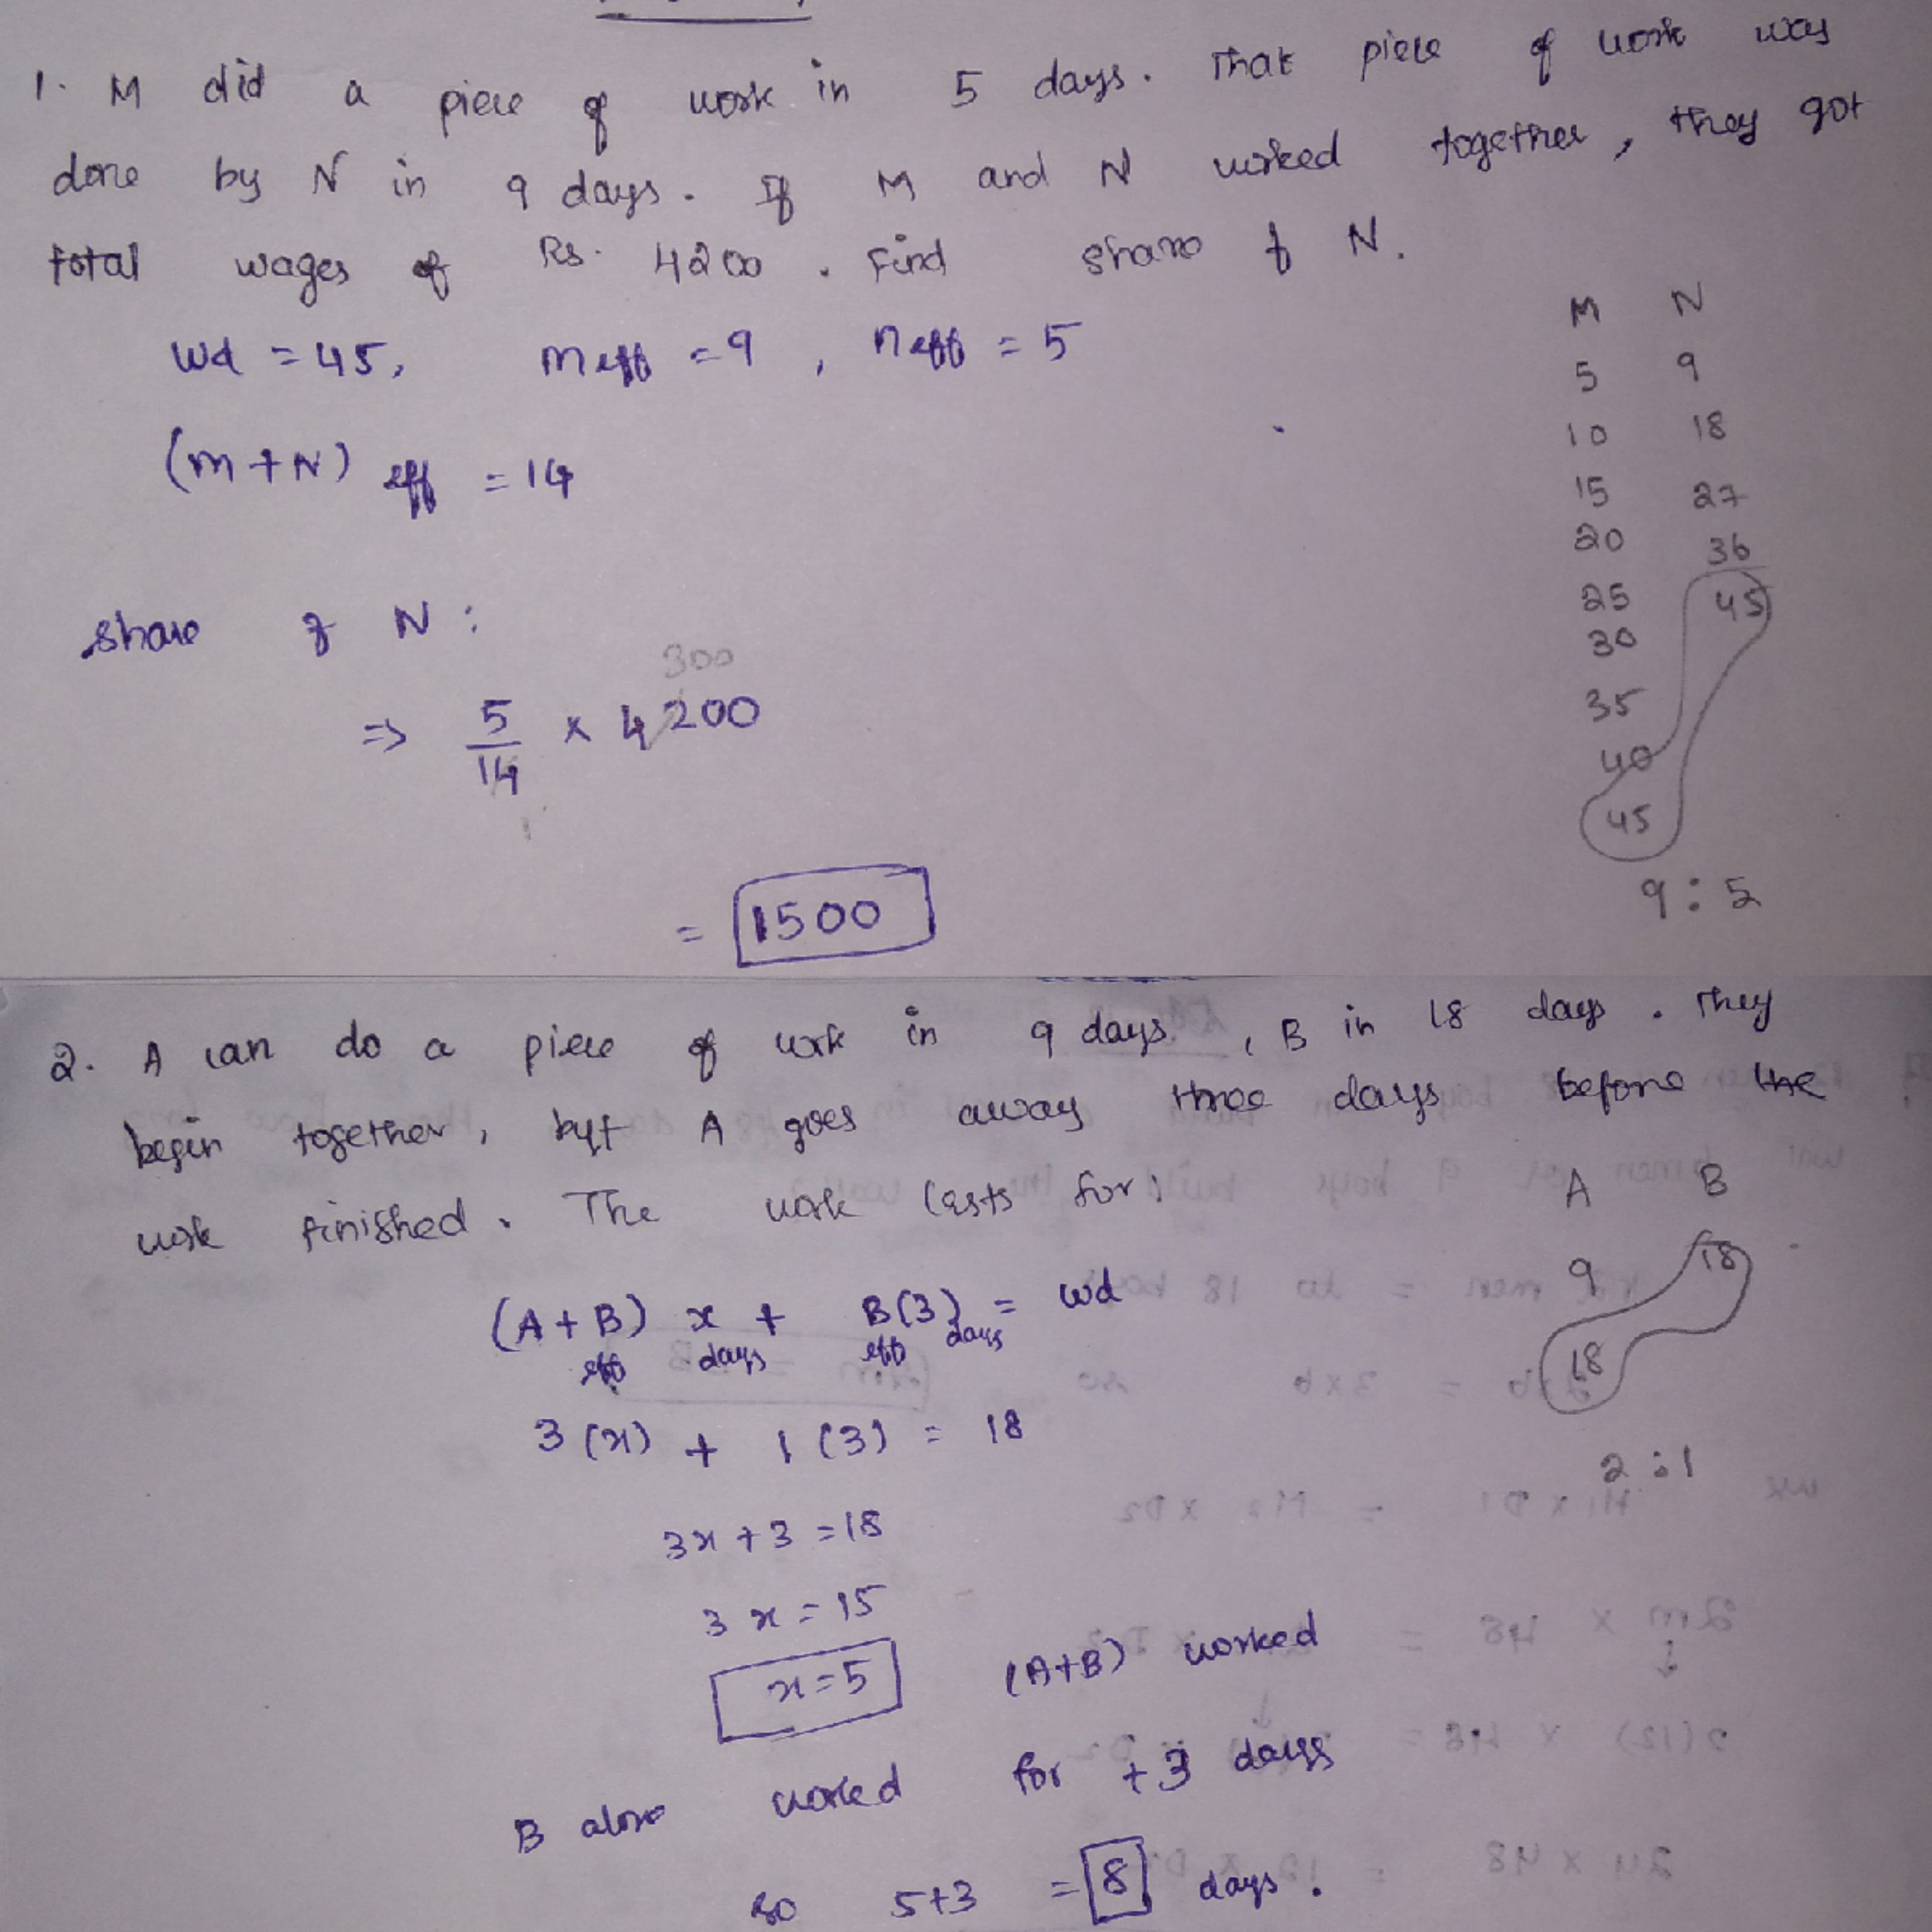 1. M did a piece of work in 5 days. That piece of work was
done by N in 9 days. If M and N worked together, they got
total wages of Rs. 4200. Find share of N.
wd = 45, m eff = 9, n eff = 5
(m+N) eff = 14
M N
5 9
10 18
15 27
20 36
25 45
30
35
40
45
9 : 5
share of N :
300
⇒ 5/14 × 4200
= 1500
2. A can do a piece of work in 9 days, B in 18 days. They
begin together, but A goes away three days before the
work finished. The work lasts for:
A B
9 18
18
2 : 1
(A+B) x + B(3) = wd
eff days eff days
3(x) + 1(3) = 18
3x + 3 = 18
3x = 15
x = 5 (A+B) worked
B alone worked for +3 days
so 5+3 = 8 days.